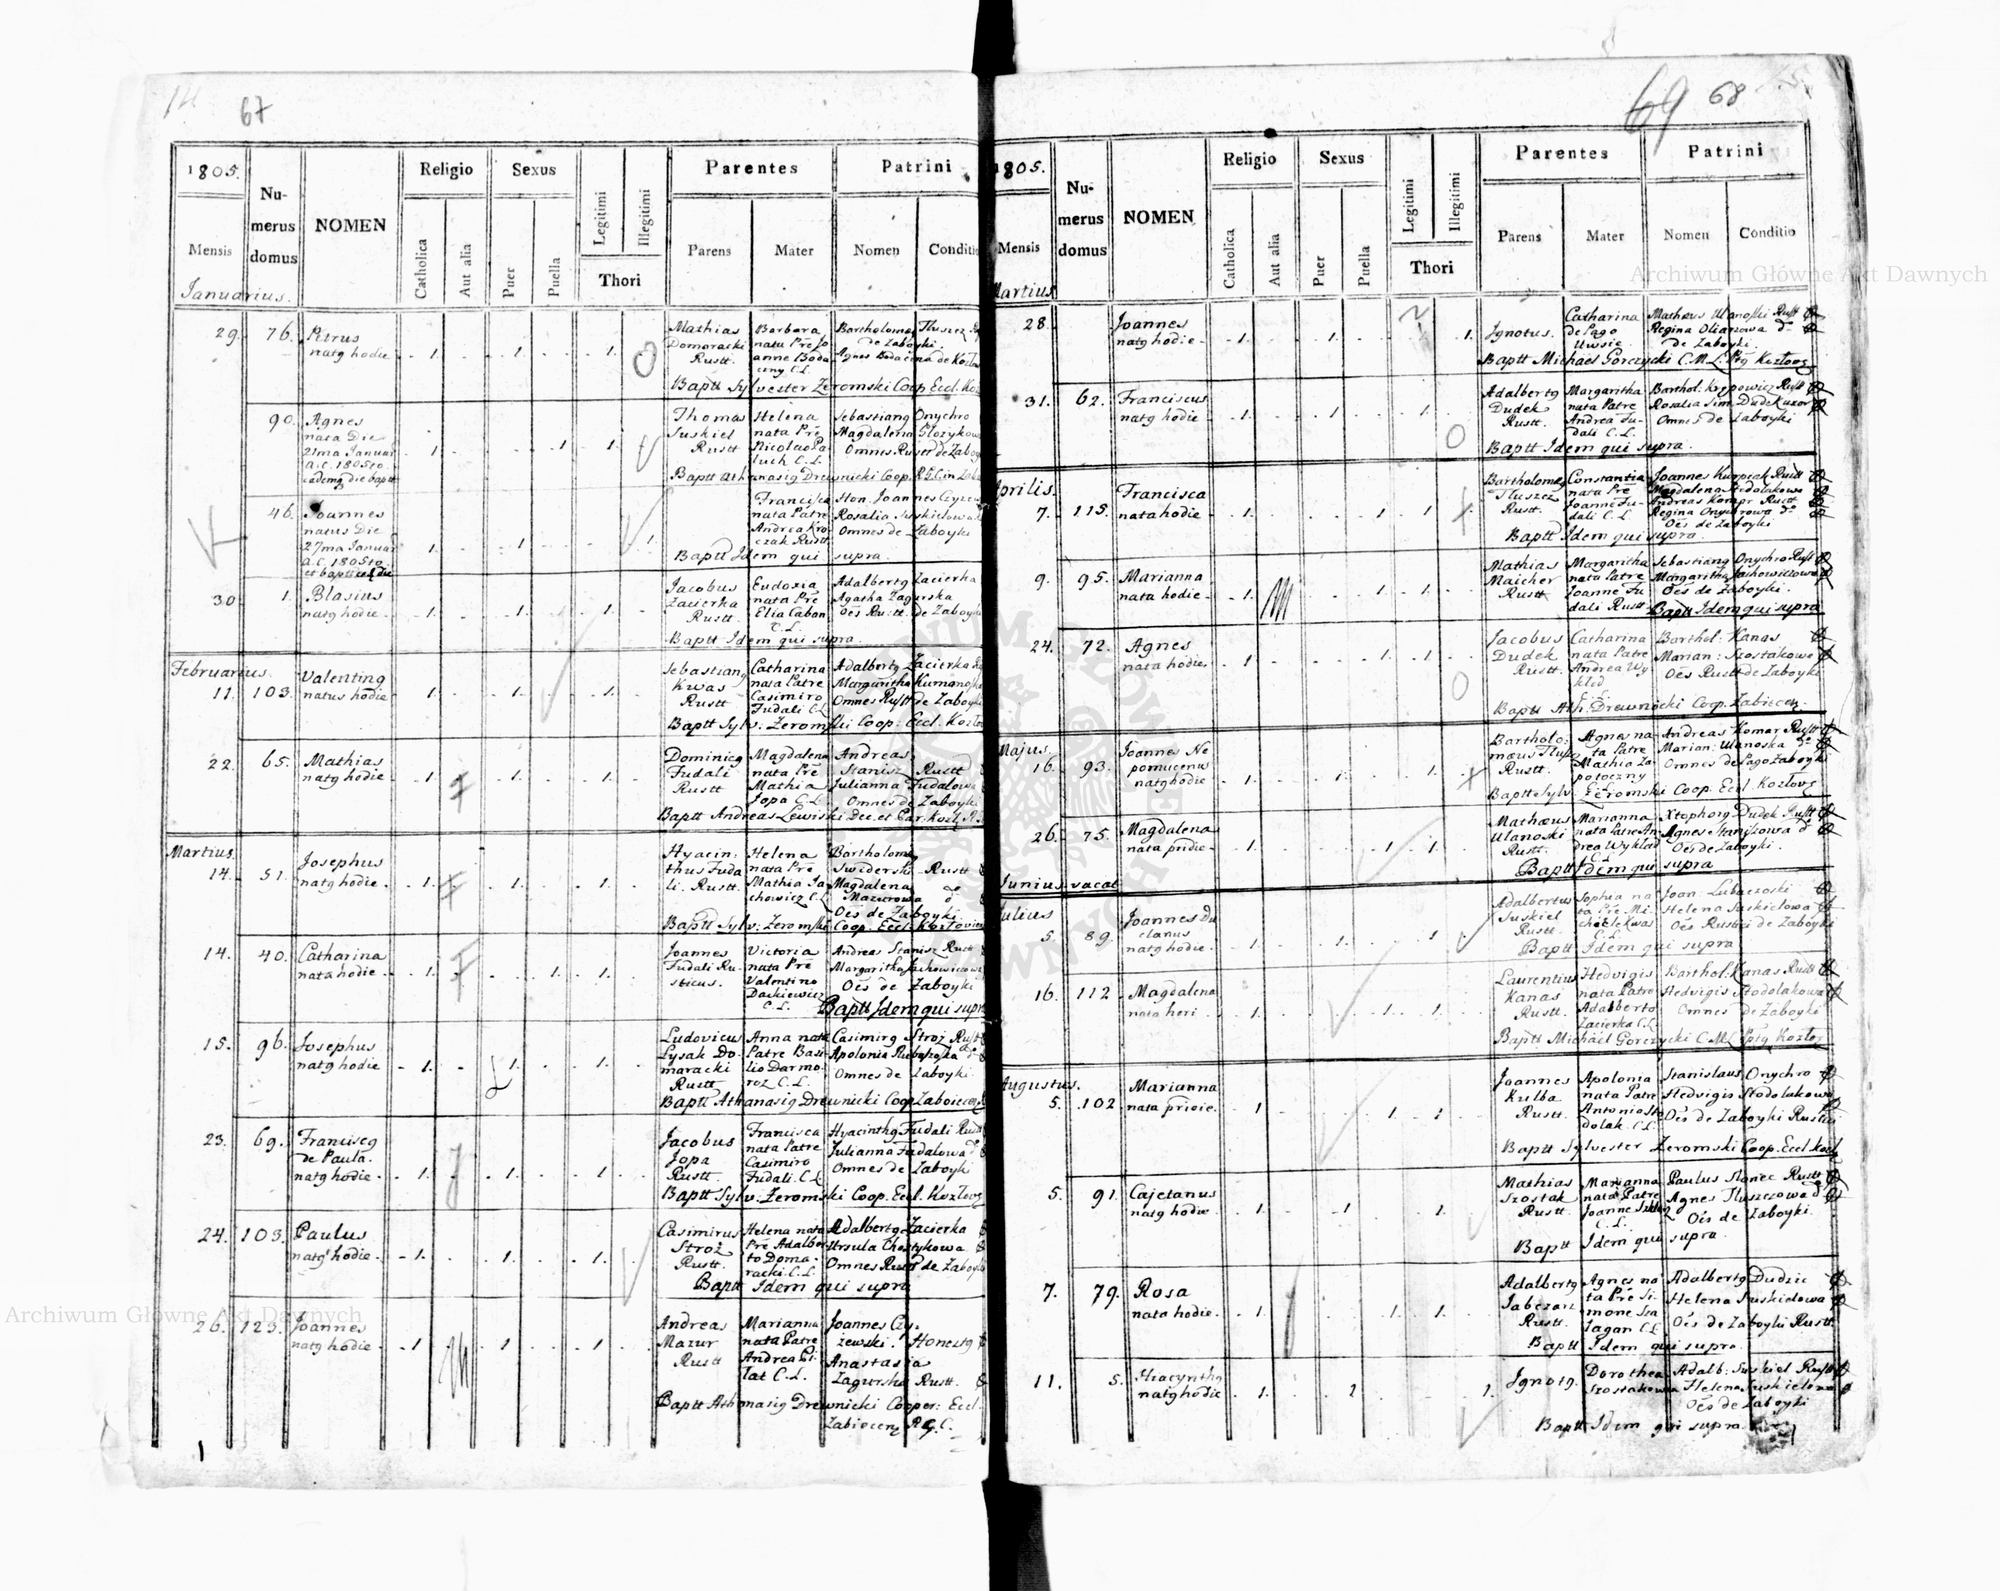 67
1805.
Nu-
merus
domus
NOMEN
Religio
Sexus
Parentes
Patrini
Mensis
Catholica
Aut alia
Puer
Puella
Legitimi
Illegitimi
Thori
Parens
Mater
Nomen
Conditio
Januarius.
29. 76. Petrus
natg hodie 1. 1. 1.
Mathias
Domaracki
Rustt.
Barbara
nata Prē Jo
anne Boda
Bartholomeg Tłuszcz
de Zaboyki.
Baptt Sylvester Zeromski Coop Eccl.
90. Agnes
nata Die
21ma Januar
a.c. 1805to
eademg die baptt
1. 1. 1.
Thomas
Suskiel
Rustt
Helena
nata Prē
Nicolao
C.L.
Sebastiang Onychro
Magdalena
Omnes Rustt de Zaboy
Baptt Athanasig Drewnicki Coop.
46. Joannes
natus Die
27ma Januar
a.c. 1805to
1. 1. 1.
Francisca
nata Patre
Andrea Kro-
czak Rustt
Hon. Joannes
Rosalia Suskielowa
Omnes de Zaboyki
Baptt Idem qui supra.
30. 1. Blasius
natg hodie. 1. 1. 1.
Jacobus
Zacierka
Rustt.
Eudoxia
nata Prē
Elia Caban
C.L.
Adalbertg Zacierka
Agatha Zagurska
Oēs Rustt. de Zaboyki
Baptt Idem qui supra.
Februarius.
11. 103. Valenting
natus hodie 1. 1. 1.
Sebastiang
Kwas
Rustt
Catharina
nata Patre
Casimiro
Fudali C.L.
Adalbertg Zacierka
Margaritha
Omnes Rustt de Zaboyki
Baptt Sylv: Zeromski Coop: Eccl.
22. 65. Mathias
natg hodie. 1. 1. 1.
Dominicg
Fudali
Rustt
Magdalena
nata Prē
Mathia
Jopa C.L.
Andreas
Stanisz Rustt
Julianna Fudalowa
Omnes de Zaboyki
Baptt Andreas Lewiski
Martius.
14. 51. Josephus
natg hodie. 1. 1. 1.
Hyacin:
thus Fuda
li. Rustt.
Helena
nata Prē
Mathia Ja
chowicz C.L.
Bartholomeg
Swiderski Rustt
Magdalena
Mazurowa
Oēs de Zaboyki
Baptt Sylv: Zeromski Coop. Eccl.
14. 40. Catharina
nata hodie. 1. 1. 1.
Joannes
Fudali Ru-
sticus.
Victoria
nata Prē
Valentino
C.L.
Andreas Stanisz Rustt
Margaritha
Oēs de Zaboyki
Baptt Idem qui supra
15. 96. Josephus
natg hodie 1. 1. 1.
Ludovicus
Lysak Do-
maracki
Rustt
Anna nata
Patre Basi
lio Darmo-
roz C.L.
Casimirg Stroż Rustt
Apolonia
Omnes de Zaboyki
Baptt Athanasig Drewnicki Coop
23. 69. Franciscg
de Paula.
natg hodie. 1. 1. 1.
Jacobus
Jopa
Rustt.
Francisca
nata Patre
Casimiro
Fudali. C.L.
Hyacinthg Fudali
Julianna Fudalowa
Omnes de Zaboyki
Baptt Sylv: Zeromski Coop. Eccl.
24. 103. Paulus
natg hodie. 1. 1. 1.
Casimirus
Stroż
Rustt.
Helena nata
Prē Adalber
to Doma-
racki C.L.
Adalbertg Zacierka
Ursula
Omnes Rustt de Zaboyki
Baptt Idem qui supra
26. 123. Joannes
natg hodie. 1 1 1
Andreas
Mazur
Rustt
Marianna
nata Patre
Andrea
C.L.
Joannes Czy-
zewski. Honestg
Anastasia
Zagurska Rustt.
Baptt Athanasig Drewnicki Cooper: Eccl.
69 68
1805.
Nu-
merus
domus
NOMEN
Religio
Sexus
Parentes
Patrini
Mensis
Catholica
Aut alia
Puer
Puella
Legitimi
Illegitimi
Thori
Parens
Mater
Nomen
Conditio
Martius
28. Joannes
natg hodie 1. 1. 1.
Ignotus.
Catharina
de Pago
Matheus Ulanoski Rustt
Regina
de Zaboyki.
Baptt Michael Gorczycki C.M.L.
31. 62. Franciscus
natg hodie 1. 1. 1.
Adalbertg
Dudek
Rustt.
Margaritha
nata Patre
Andrea Fu-
dali C.L.
Barthol.
Rosalia
Omnes de Zaboyki
Baptt Idem qui supra.
Aprilis.
7. 115. Francisca
nata hodie 1. 1. 1
Bartholomeg
Tłuszcz
Rustt.
Constantia
nata Prē
Joanne Fu-
dali C.L.
Joannes Rustt
Magdalena
Andreas Komar Rustt
Regina
Oēs de Zaboyki
Baptt Idem qui supra.
9. 95. Marianna
nata hodie. 1. 1. 1.
Mathias
Maicher
Rustt
Margaritha
nata Patre
Joanne Fu
dali Rustt
Sebastiang Onychro Rustt
Margaritha
Oēs de Zaboyki.
Baptt Idem qui supra
24. 72. Agnes
nata hodie 1 1. 1.
Jacobus
Dudek
Rustt.
Catharina
nata Patre
Andrea Wy
kład
C.L.
Barthol: Kanas
Marian: Szostakowa
Oēs Rustt de Zaboyki
Baptt Ath: Drewnicki Coop.
Majus.
16. 93. Joannes Ne
pomucenus
natg hodie 1. 1. 1.
Bartholo:
Rustt.
Agnes na-
ta Patre
Mathia Za
potoczny
Andreas Komar Rustt
Marian: Ulanoska
Omnes de Pago Zaboyki
Baptt Sylv. Zeromski Coop. Eccl.
26. 75. Magdalena
nata pridie. 1. 1. 1.
Matheus
Ulanoski
Rustt.
Marianna
nata Patre An
drea Wykład
C.L.
Xtophorg Dudek Rustt
Agnes
Oēs de Zaboyki.
Baptt Idem qui supra
Junius vacat
Julius
5. 89. Joannes Du
clanus
natg hodie. 1. 1. 1.
Adalbertus
Suskiel
Rustt.
Sophia na
ta Prē Mi-
chaele Kwas
C.L.
Joan:
Helena Suskielowa
Oēs Rustici de Zaboyki
Baptt Idem qui supra
16. 112 Magdalena
nata heri. 1. 1. 1.
Laurentius
Kanas
Rustt.
Hedvigis
nata Patre
Adalberto
Zacierka C.L.
Barthol: Kanas Rustt
Hedvigis Stodolakowa
Omnes de Zaboyki
Baptt Michael Gorczycki C.M.L.
Augustus.
5. 102 Marianna
nata pridie. 1 1. 1.
Joannes
Kulba
Rustt.
Apolonia
nata Patre
Antonio Sto
dolak. C.L.
Stanislaus Onychro
Hedvigis Stodolakowa
Oēs de Zaboyki Rustici
Baptt Sylvester Zeromski Coop. Eccl.
5. 91. Cajetanus
natg hodie 1. 1. 1.
Mathias
Szostak
Rustt.
Marianna
nata Patre
Joanne
C.L.
Paulus Rustt
Agnes Tłuszczowa
Oēs de Zaboyki.
Baptt Idem qui supra.
7. 79. Rosa
nata hodie. 1. 1. 1.
Adalbertg
Rustt.
Agnes na
ta Prē Si-
mone
C.L.
Adalbertg
Helena Suskielowa
Oēs de Zaboyki Rustt
Baptt Idem qui supra.
11. 5. Hiacynthg
natg hodie 1. 1 1.
Ignotg.
Dorothea
Szostakowna
Adalb: Suskiel Rustt
Helena Suskielowa
Oēs de Zaboyki
Baptt Idem qui supra.
Archiwum Główne Akt Dawnych
Archiwum Główne Akt Dawnych